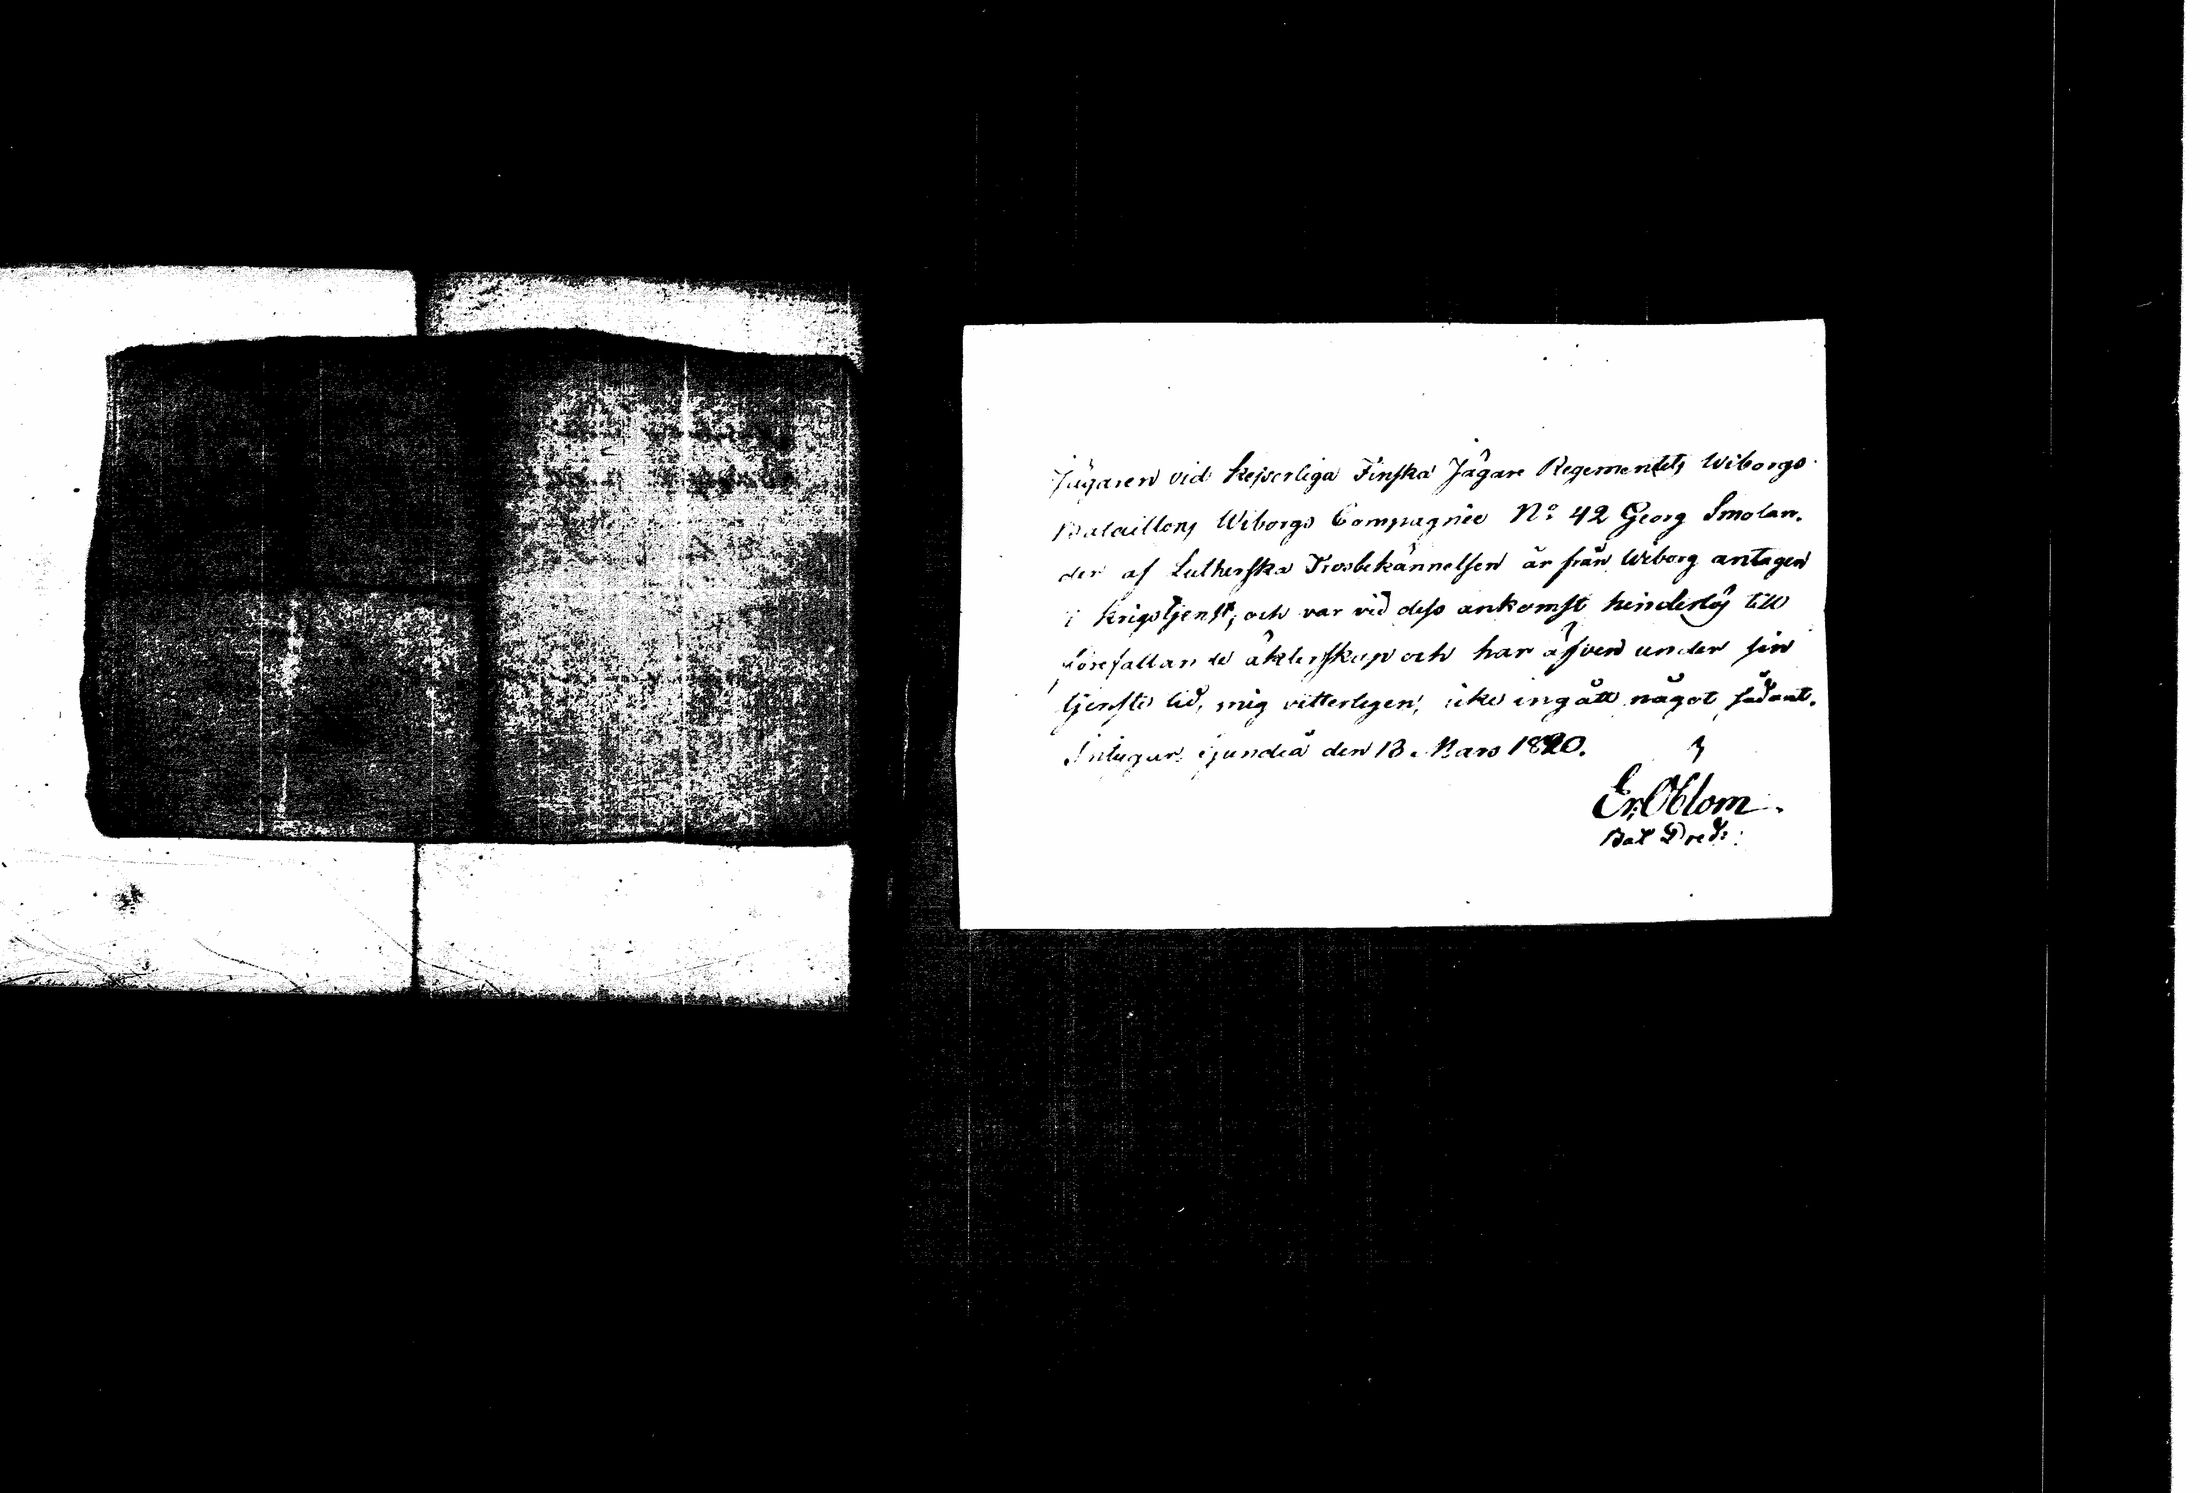 Jägaren vid Kejserliga Finska Jägare Regementets Wiborgs
Bataillons Wiborgs Compagnie No 42 Georg Smolan-
der af Lutherska Trosbekännelsen är från Wiborg antagen
i Krigstjenst, och var vid dess ankomst hinderlös till
förefallande äktenskap och har äfven under sin
tjenste tid, mig vitterligen, icke ingått något sådant.
den 13 Mars 1820.
Bat Pred: